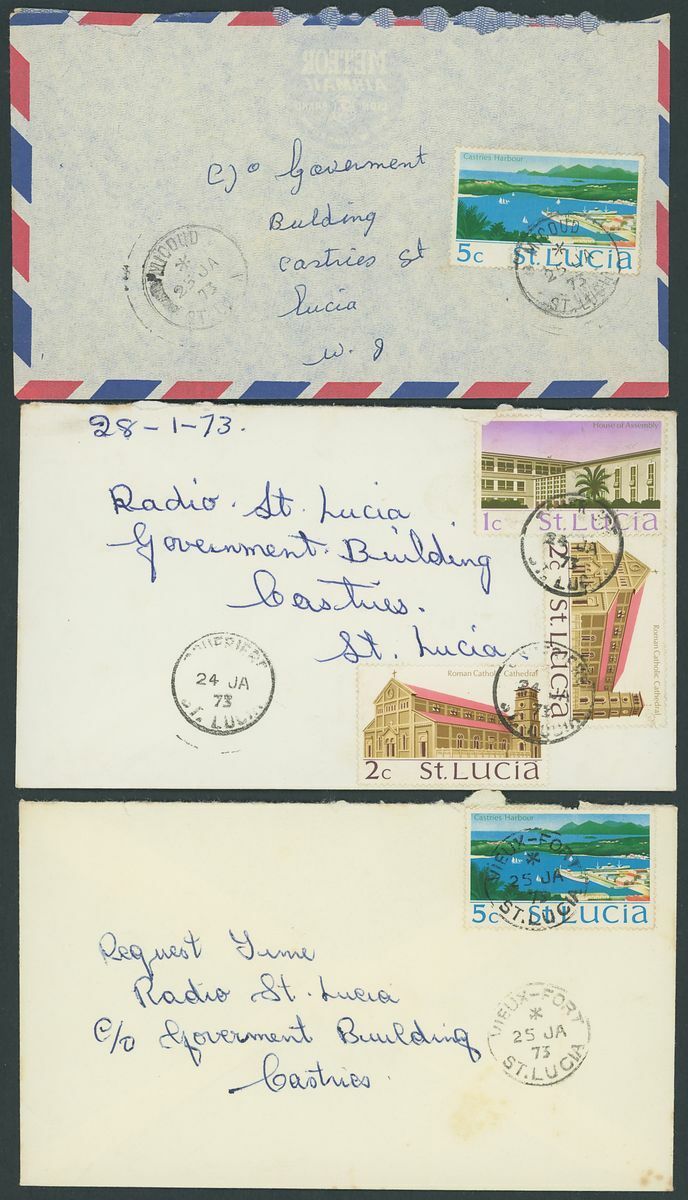 METEOR
AIRMAIL
C/o Goverment
Bulding
Castries St
Lucia
W. J
Castries Harbour
5c St. LUCIA
MICOUD
*
25 JA
73
ST. LUCIA
MICOUD
*
25 JA
73
ST. LUCIA
28-1-73.
Radio. St. Lucia
Government. Building
Castries.
St. Lucia
House of Assembly
1c St. LUCIA
24 JA
73
ST. LUCIA
Roman Catholic Cathedral
2c St. LUCIA
Roman Catholic Cathedral
2c St. LUCIA
24 JA
73
ST. LUCIA
24 JA
73
ST. LUCIA
Castries Harbour
5c St. LUCIA
VIEUX-FORT
*
25 JA
73
ST. LUCIA
Request Time
Radio St. Lucia
C/o Goverment Buulding
Castries.
VIEUX-FORT
*
25 JA
73
ST. LUCIA